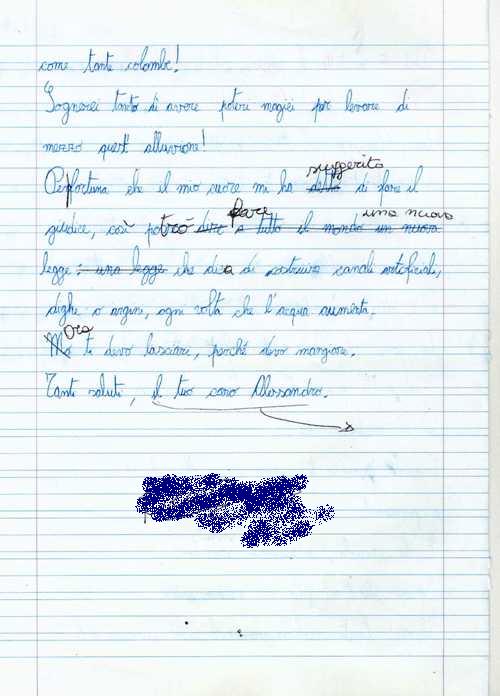 come tante colombe!
Sognerei tanto di avere poteri magici per levare di
mezzo quest'alluvione!
suggerito
Per fortuna che il mio cuore mi ha detto di fare il
fare una nuova
giudice, così potrò dire a tutto il mondo un nuova
legge: una legge che dica di costruire canali artificiali,
dighe o argini, ogni volta che l'acqua aumenta.
Ora
Ma ti devo lasciare, perché devo mangiare.
Tanti saluti, il tuo caro Alessandro.